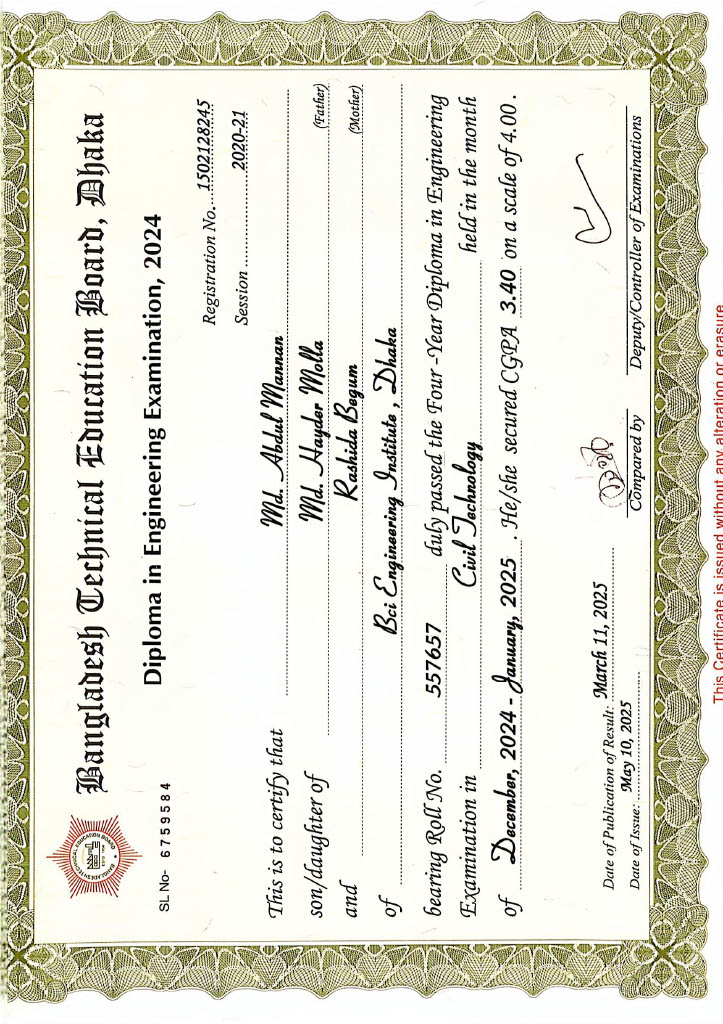 Bangladesh Technical Education Board, Dhaka
Diploma in Engineering Examination, 2024
SL.No- 6759584
Registration No. 1502128245
Session 2020-21
This is to certify that Md. Abdul Mannan
son/daughter of Md. Hayder Molla (Father)
and Rashida Begum (Mother)
of Bci Engineering Institute, Dhaka
bearing Roll No. 557657 duly passed the Four -Year Diploma in Engineering
Examination in Civil Technology held in the month
of December, 2024 - January, 2025. He/she secured CGPA 3.40 on a scale of 4.00.
Date of Publication of Result: March 11, 2025
Date of Issue: May 10, 2025
Compared by
Deputy/Controller of Examinations
This Certificate is issued without any alteration or erasure